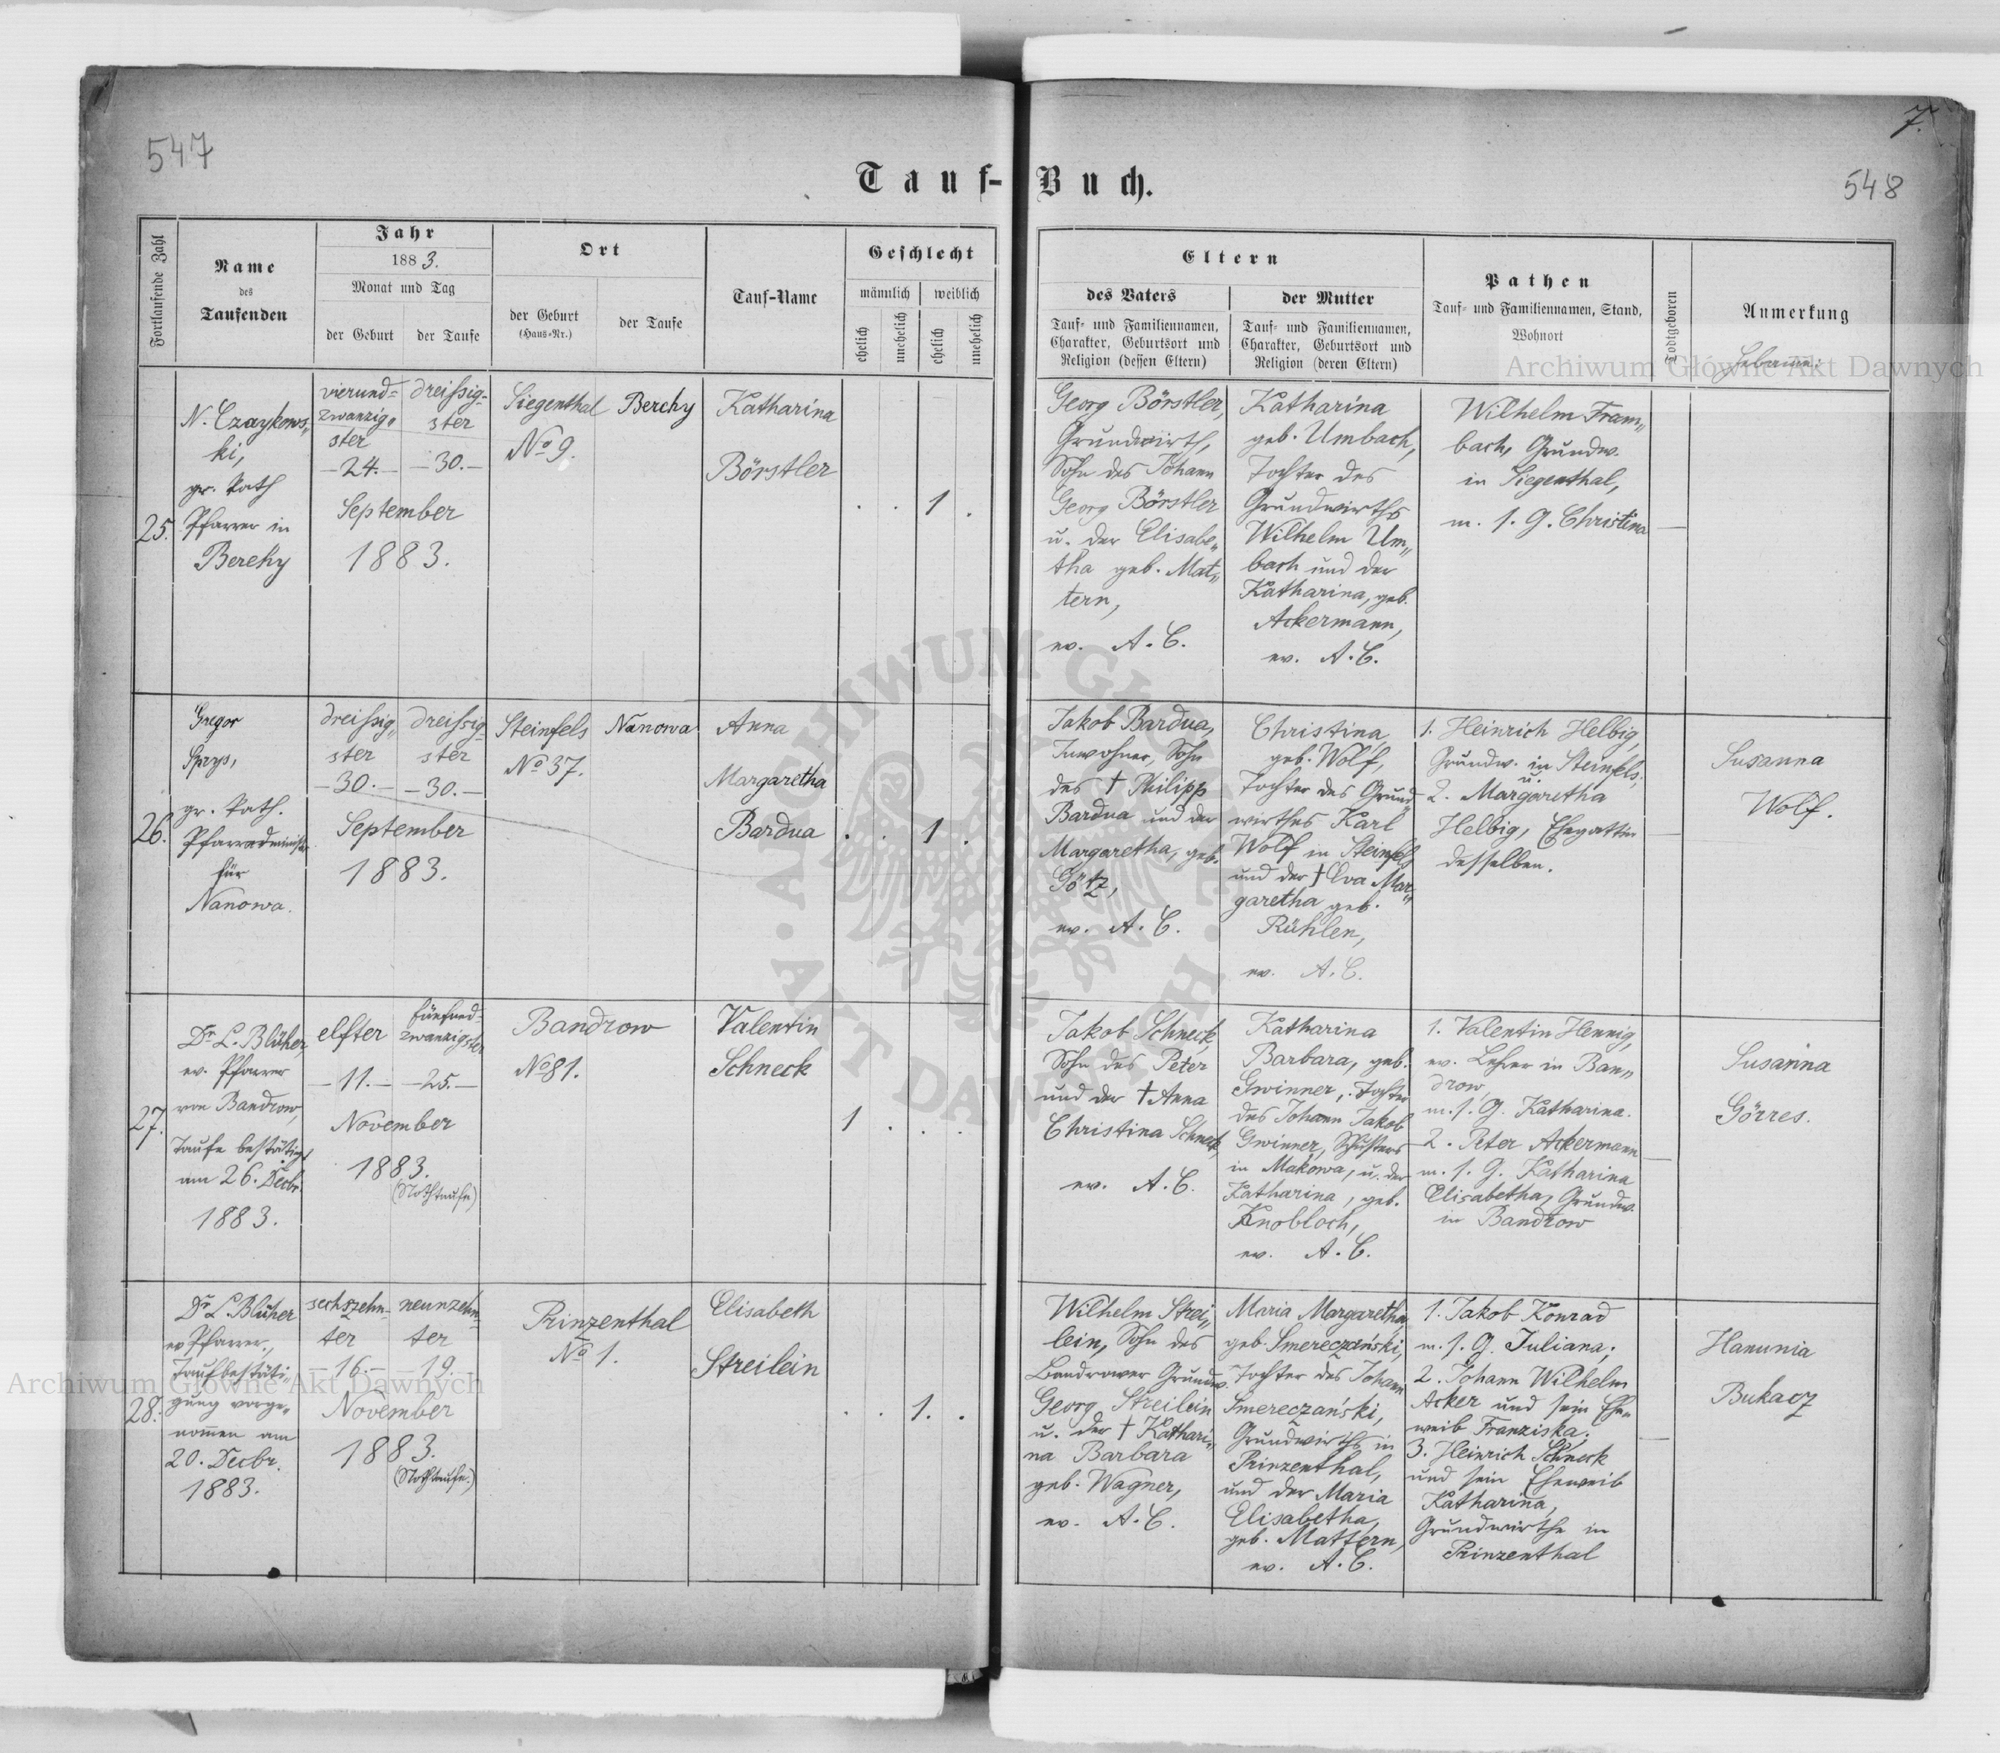 547
7.
548
Tauf-Buch.
Fortlaufende Zahl
Name
des
Taufenden
Jahr
1883.
Monat und Tag
der Geburt
der Taufe
Ort
der Geburt
(Haus-Nr.)
der Taufe
Tauf-Name
Geschlecht
männlich
weiblich
ehelich
unehelich
ehelich
unehelich
Eltern
des Vaters
Tauf- und Familiennamen,
Charakter, Geburtsort und
Religion (dessen Eltern)
der Mutter
Tauf- und Familiennamen,
Charakter, Geburtsort und
Religion (deren Eltern)
Pathen
Tauf- und Familiennamen, Stand,
Wohnort
Todtgeboren
Anmerkung
Archiwum Główne Akt Dawnych
25.
N. Czaykows„
ki,
gr. kath
Pfarrer in
Berehy
vierund=
zwanzig„
ster
—24.—
dreissig-
ster
—30.—
September
1883.
Siegenthal
No 9.
Berehy
Katharina
Börstler
1
Georg Börstler,
Grundwirth,
Sohn des Johann
Georg Börstler
u. der Elisabe„
tha geb. Mat„
tern,
ev. A. C.
Katharina
geb. Umbach,
Tochter des
Grundwirths
Wilhelm Um„
bach und der
Katharina, geb.
Ackermann,
ev. A. C.
Wilhelm Fram„
bach, Grundw.
in Siegenthal,
m. s. G. Christina
26.
Gregor
Sprys,
gr. kath.
Pfarradminist.
für
Nanowa.
dreissig„
ster
—30.—
dreissig-
ster
—30.—
September
1883.
Steinfels
No 37.
Nanowa
Anna
Margaretha
Bardua
1
Jakob Bardua,
Inwohner, Sohn
des † Philipp
Bardua und der
Margaretha, geb.
Götz,
ev. A. C.
Christina
geb. Wolf,
Tochter des Grund„
wirthes Karl
Wolf in Steinfels
und der † Eva Mar„
garetha geb.
Rühlen,
ev. A. C.
1. Heinrich Helbig,
Grundw. in Steinfels,
u.
2. Margaretha
Helbig, Ehegattin
desselben.
Susanna
Wolf.
27.
Dr L. Blüher,
ev. Pfarrer
von Bandrow,
Taufe bestätigt
am 26. Decbr.
1883.
elfter
—11.—
fünfund-
zwanzigster
—25.—
November
1883.
(Nothtaufe)
Bandrow
No 81.
Valentin
Schneck
1
Jakob Schneck,
Sohn des Peter
und der † Anna
Christina Schneck,
ev. A. C.
Katharina
Barbara, geb.
Gwinner, Tochter
des Johann Jakob
Gwinner, Schusters
in Makowa, u. der
Katharina, geb.
Knobloch,
ev. A. C.
1. Valentin Hennig,
ev. Lehrer in Ban„
drow,
m. s. G. Katharina.
2. Peter Ackermann
m. s. G. Katharina
Elisabetha, Grundw.
in Bandrow
Susanna
Görres.
28.
Dr L. Blüher
ev Pfarrer,
Taufbestäti„
gung vorge„
nommen am
20. Decbr.
1883.
sechszehn-
ter
—16.—
neunzehn-
ter
—19.—
November
1883.
(Nothtaufe.)
Prinzenthal
No 1.
Elisabeth
Streilein
1.
Wilhelm Strei„
lein, Sohn des
Bandrower Grundw.
Georg Streilein
u. der † Kathari„
na Barbara
geb. Wagner,
ev. A. C.
Maria Margaretha
geb. Smereczański,
Tochter des Johann
Smereczański,
Grundwirths in
Prinzenthal,
und der Maria
Elisabetha,
geb. Mattern,
ev. A. C.
1. Jakob Konrad
m. s. G. Juliana;
2. Johann Wilhelm
Acker und sein Ehe„
weib Franziska;
3. Heinrich Schneck
und sein Eheweib
Katharina,
Grundwirthe in
Prinzenthal
Hanunia
Bukacz
Archiwum Główne Akt Dawnych
ARCHIWUM GŁÓWNE AKT DAWNYCH